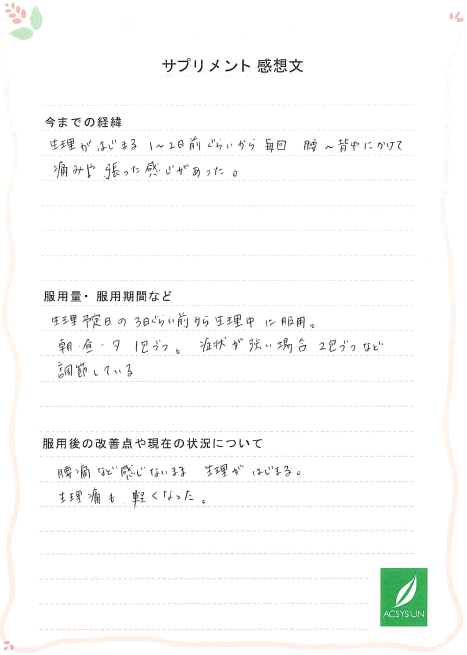 サプリメント 感想文
今までの経緯
生理がはじまる 1～2日前ぐらいから 毎回 腰～背中にかけて
痛みや 張った感じがあった。
服用量・服用期間など
生理予定日の 3日ぐらい前から 生理中に服用。
朝・昼・夕 1包づつ。 症状が強い場合 2包づつなど
調節している
服用後の改善点や現在の状況について
腰痛など感じないまま 生理が はじまる。
生理痛も 軽くなった。
ACSYSUN